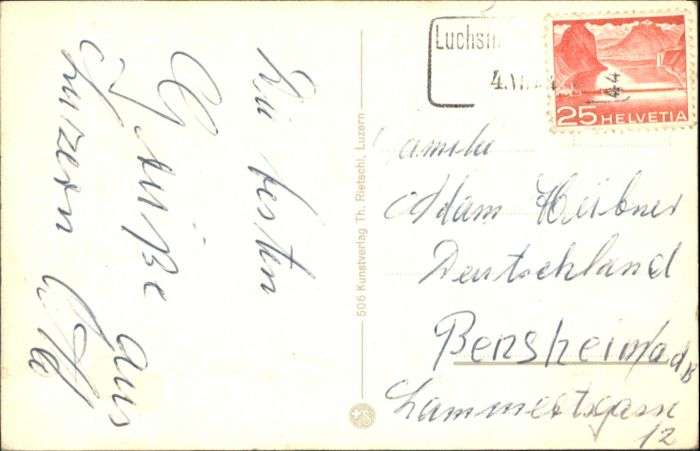 Die besten
Grüße aus
Luzern
506 Kunstverlag Th. Rietschi, Luzern
Luchsin
4.VI.
25 HELVETIA
Familie
Adam Heibner
Deutschland
Bensheim a d B
12